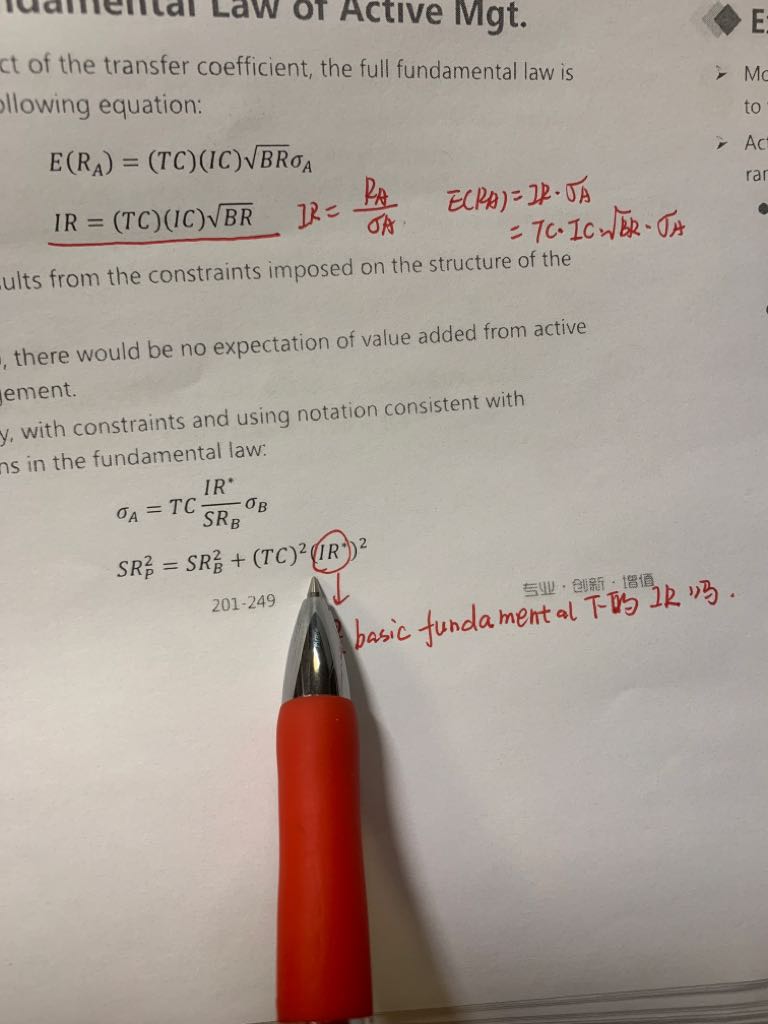 ndamental Law of Active Mgt.
ct of the transfer coefficient, the full fundamental law is
ollowing equation:
E(R_A) = (TC)(IC)√BRσ_A
IR = (TC)(IC)√BR
IR = R_A/σ_A
E(RA) = IR·σA
= TC·IC·√BR·σA
sults from the constraints imposed on the structure of the
, there would be no expectation of value added from active
gement.
y, with constraints and using notation consistent with
ns in the fundamental law:
σ_A = TC IR*/SR_B σ_B
SR_P² = SR_B² + (TC)²(IR*)²
201-249
专业·创新·增值
basic fundamental 下的 IR
E
Mo
to
Act
rar